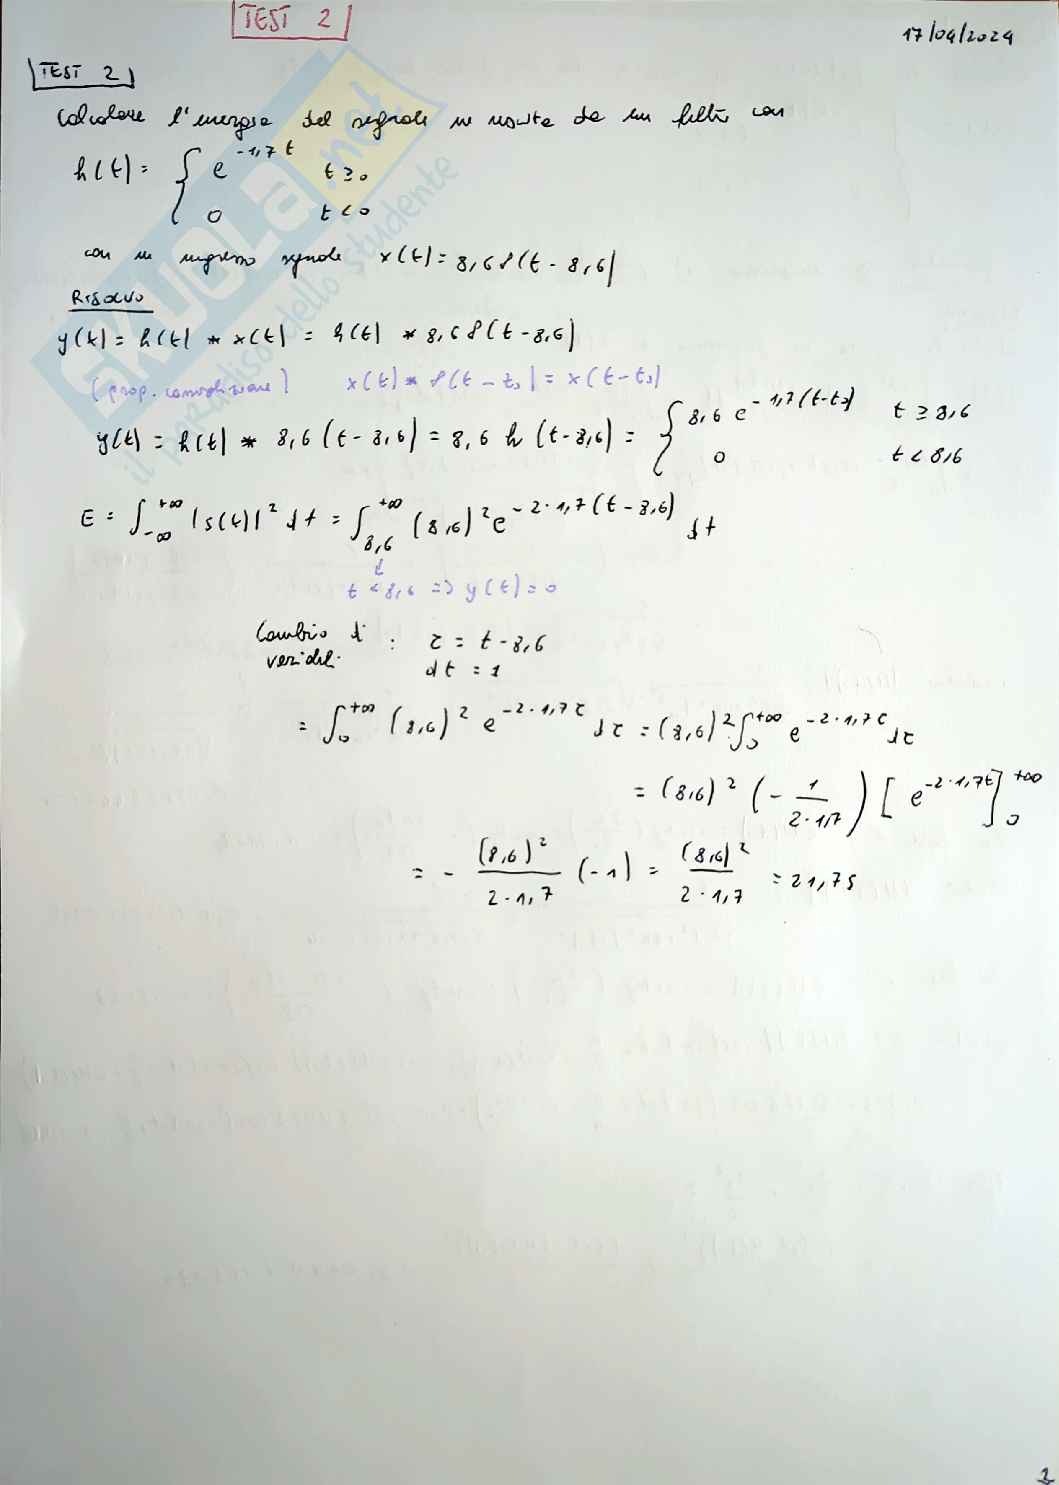 TEST 2
17/04/2024
TEST 2
Calcolare l'energia del segnale in uscita da un filtro con
h(t) = { e^{-1,7t} t ≥ 0
0 t < 0
con in ingresso segnale x(t) = 8,6 δ(t - 8,6)
RISOLVO
y(t) = h(t) * x(t) = h(t) * 8,6 δ(t - 8,6)
(prop. convoluzione) x(t) * δ(t - t₀) = x(t - t₀)
y(t) = h(t) * 8,6 (t - 8,6) = 8,6 h(t - 8,6) = { 8,6 e^{-1,7(t-t₀)} t ≥ 8,6
0 t < 8,6
E = ∫_{-∞}^{+∞} |s(t)|² dt = ∫_{8,6}^{+∞} (8,6)² e^{-2·1,7(t-8,6)} dt
↓
t < 8,6 => y(t) = 0
Cambio di variabil. : τ = t - 8,6
dt = 1
= ∫_0^{+∞} (8,6)² e^{-2·1,7τ} dτ = (8,6)² ∫_0^{+∞} e^{-2·1,7τ} dτ
= (8,6)² (- 1/(2·1,7)) [e^{-2·1,7t}]_0^{+∞}
= - (8,6)²/(2·1,7) (-1) = (8,6)²/(2·1,7) = 21,75
SKUOLA.net
il paradiso dello studente